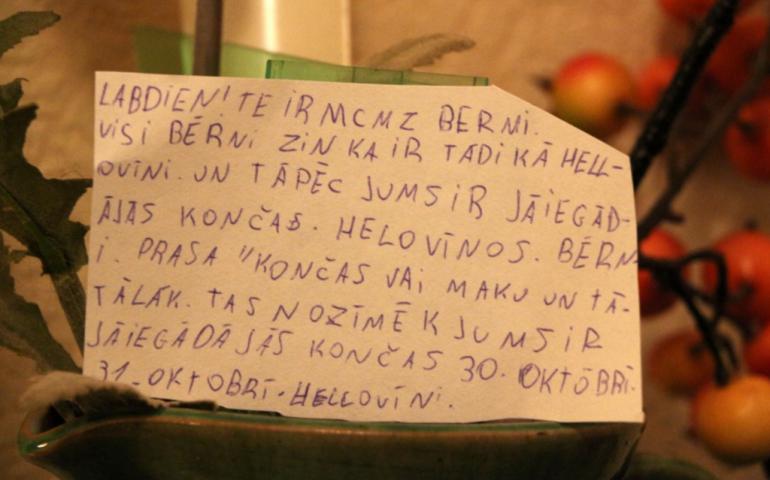 LABDIEN! TE IR MCMZ BĒRNI.
VISI BĒRNI ZIN KA IR TĀDI KĀ HELL-
OVĪNI. UN TĀPĒC JUMS IR JĀIEGĀD-
ĀJĀS KONČAS. HELOVĪNOS. BĒRN
I. PRASA "KONČAS VAI MAKU UN TĀ-
TĀLĀK. TAS NOZĪMĒ K JUMS IR
JĀIEGĀDĀJĀS KONČAS 30. OKTŌBRĪ.
31. OKTOBRĪ. HELLOVĪNI.